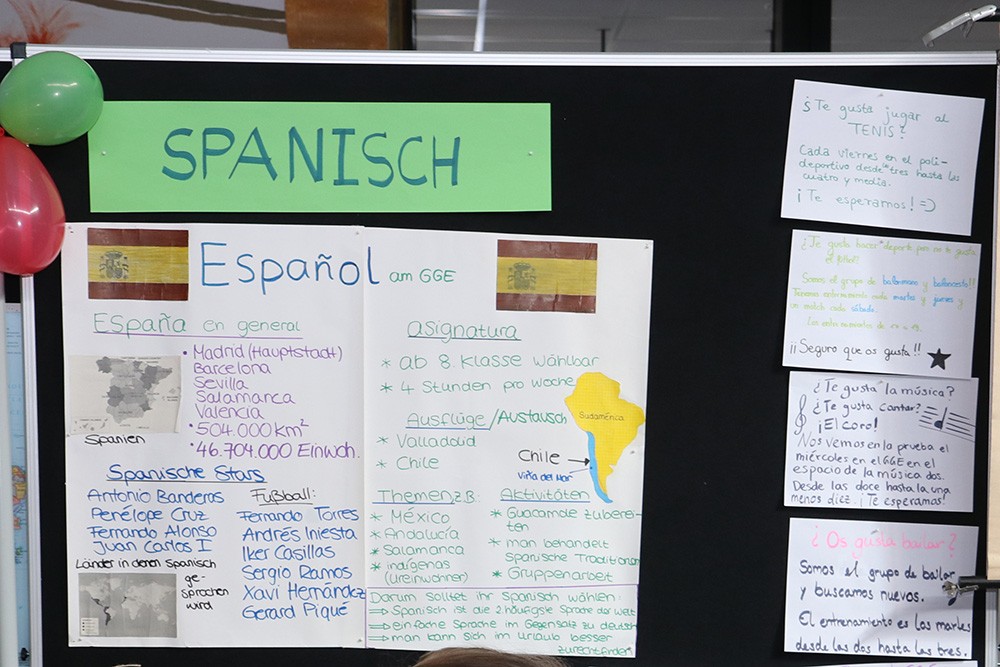 SPANISCH
Español am GGE
España en general
• Madrid (Hauptstadt)
Barcelona
Sevilla
Salamanca
Valencia
• 504.000 km²
• 46.704.000 Einwoh.
Spanien
Spanische Stars
Antonio Banderas
Penélope Cruz
Fernando Alonso
Juan Carlos I
Fußball:
Fernando Torres
Andrés Iniesta
Iker Casillas
Sergio Ramos
Xavi Hernández
Gerard Piqué
Länder in denen Spanisch
ge-
sprochen
wird
asignatura
* ab 8. Klasse wählbar
* 4 Stunden pro Woche
Ausflüge/Austausch
* Valladolid
* Chile
Sudamérica
Chile →
Viña del Mar
Themen z.B.:
* México
* Andalucía
* Salamanca
* indígenas
(Ureinwohner)
Aktivitäten
* Guacamole zuberei-
ten
* man behandelt
Spanische Traditionen
* Gruppenarbeit
Darum solltet ihr Spanisch wählen:
⇒ Spanisch ist die 2. häufigste Sprache der Welt
⇒ einfache Sprache im Gegensatz zu deutsch
⇒ man kann sich im Urlaub besser
zurechtfinden
¿Te gusta jugar al
TENIS?
Cada viernes en el poli-
deportivo desde las tres hasta las
cuatro y media.
¡Te esperamos! =)
¿Te gusta hacer deporte pero no te gusta
el fútbol?
Somos el grupo de balonmano y baloncesto!!
Tenemos entrenamiento cada martes y jueves y
un match cada sábado.
¡¡Seguro que os gusta!!
¿Te gusta la música?
¿Te gusta cantar?
¡El coro!
Nos vemos en la prueba el
miércoles en el GGE en el
espacio de la música dos.
Desde las doce hasta la una
menos diez. ¡Te esperamos!
¿Os gusta bailar?
Somos el grupo de bailar
y buscamos nuevos.
El entrenamiento es los martes
desde las dos hasta las tres.